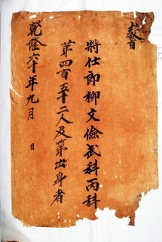 教旨
將仕郎柳文儉武科丙科
第四百五十二人及第出身者
乾隆六十年九月 日